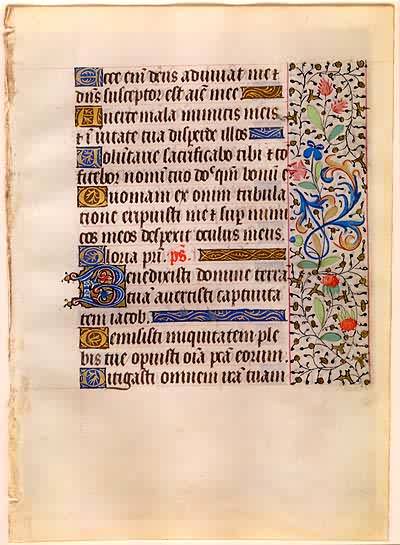 Ecce eni deus adiuuat me ⁊
dn̄s susceptor est aīe mee
Auerte mala inimicis meis
⁊ ī uītate tua disperde illos
Volūtarie sacrificabo tibi ⁊ cō
fitebor nomīi tuo dn̄e qm̄ bonū ē
Quoniam ex omni tribula
cione eripuisti me ⁊ sup̄ inimi
cos meos despexit oculus meus.
Gloria pr̄i. ps̄.
Benedixisti domine terrā
tuā auertisti captiuita
tem iacob.
Remisisti iniquitatem ple
bis tue opuisti oīa pc̄ā eorum.
Mitigasti omnem irā tuam